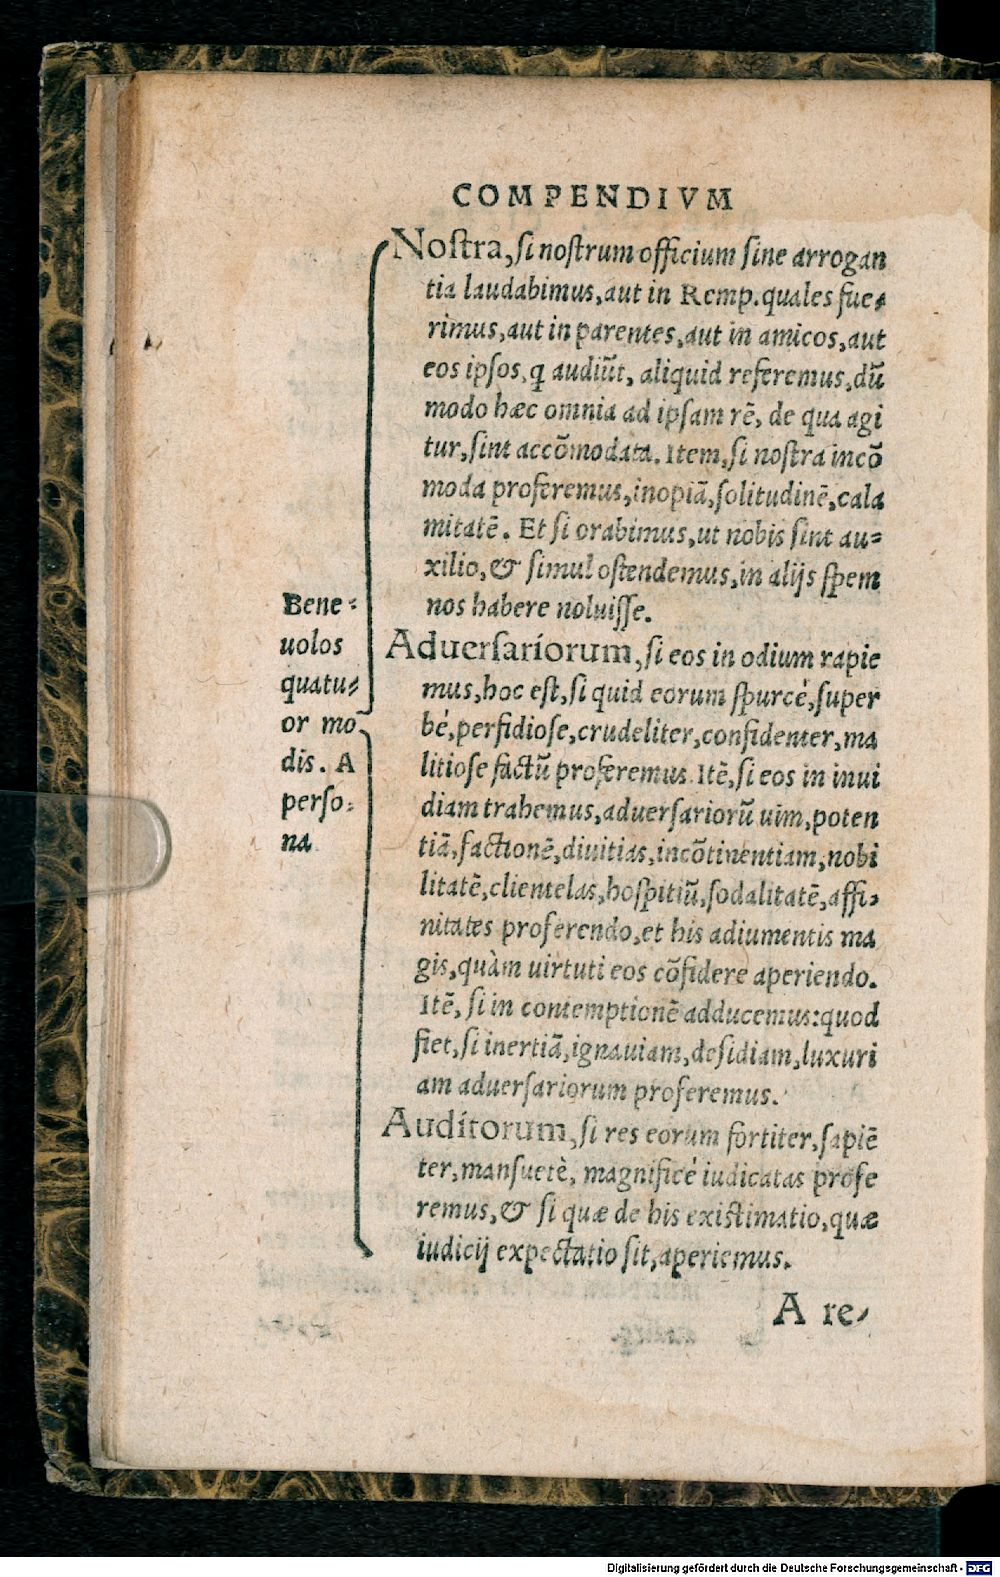 COMPENDIVM
Noſtra, ſi noſtrum officium ſine arrogan
tia laudabimus, aut in Remp. quales fue-
rimus, aut in parentes, aut in amicos, aut
eos ipſos, q audiũt, aliquid referemus, dũ
modo hæc omnia ad ipſam rẽ, de qua agi
tur, ſint accõmodata. Item, ſi noſtra incõ
moda proferemus, inopiã, ſolitudinẽ, cala
mitatẽ. Et ſi orabimus, ut nobis ſint au-
xilio, & ſimul oſtendemus, in alijs ſpem
nos habere noluiſſe.
Bene-
uolos
quatu-
or mo
dis. A
perſo-
na
Aduerſariorum, ſi eos in odium rapie
mus, hoc eſt, ſi quid eorum ſpurcé, ſuper
bé, perfidioſe, crudeliter, confidenter, ma
litioſe factũ proferemus. Itẽ, ſi eos in inui
diam trahemus, aduerſariorũ uim, poten
tiã, factionẽ, diuitias, incõtinentiam, nobi
litatẽ, clientelas, hoſpitiũ, ſodalitatẽ, affi-
nitates proferendo, et his adiumentis ma
gis, quàm uirtuti eos cõfidere aperiendo.
Itẽ, ſi in contemptionẽ adducemus: quod
fiet, ſi inertiã, ignauiam, deſidiam, luxuri
am aduerſariorum proferemus.
Auditorum, ſi res eorum fortiter, ſapiẽ
ter, manſuetè, magnificé iudicatas profe
remus, & ſi quæ de his exiſtimatio, quæ
iudicij expectatio ſit, aperiemus.
A re-
Digitalisierung gefördert durch die Deutsche Forschungsgemeinschaft - DFG